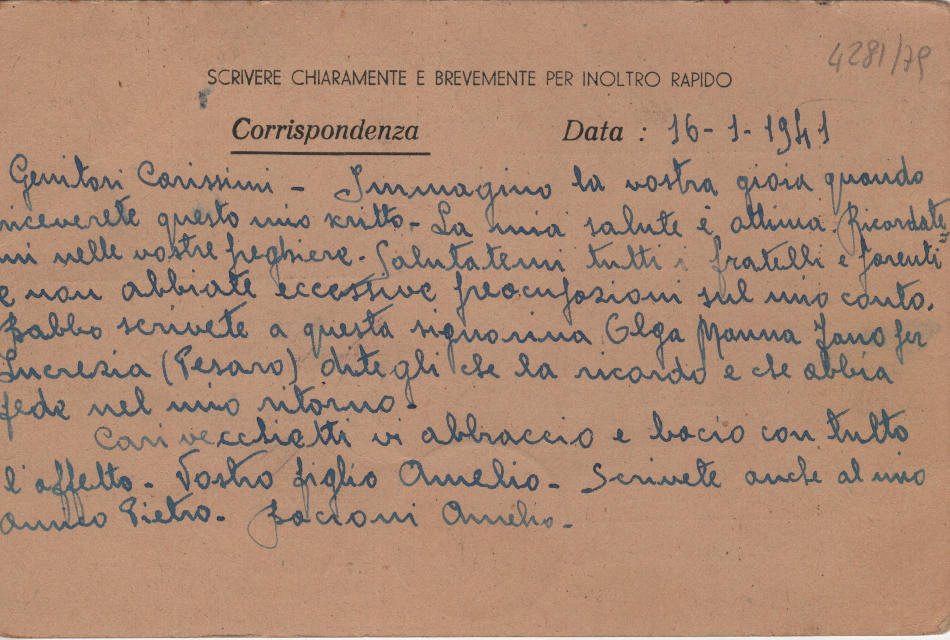 4281/79
SCRIVERE CHIARAMENTE E BREVEMENTE PER INOLTRO RAPIDO
Corrispondenza Data : 16-1-1941
Genitori Carissimi - Immagino la vostra gioia quando
riceverete questo mio scritto - La mia salute è ottima. Ricordate=
mi nelle vostre preghiere - Salutatemi tutti i fratelli e parenti
e non abbiate eccessive preocupazioni sul mio conto.
Babbo scrivete a questa signorina Olga Manna Fano per
Lucrezia (Pesaro) dite gli che la ricordo e che abbia
fede nel mio ritorno -
Cari vecchietti vi abbraccio e bacio con tutto
l'affetto - Vostro figlio Amelio - Scrivete anche al mio
amico Pietro - Bacioni Amelio -